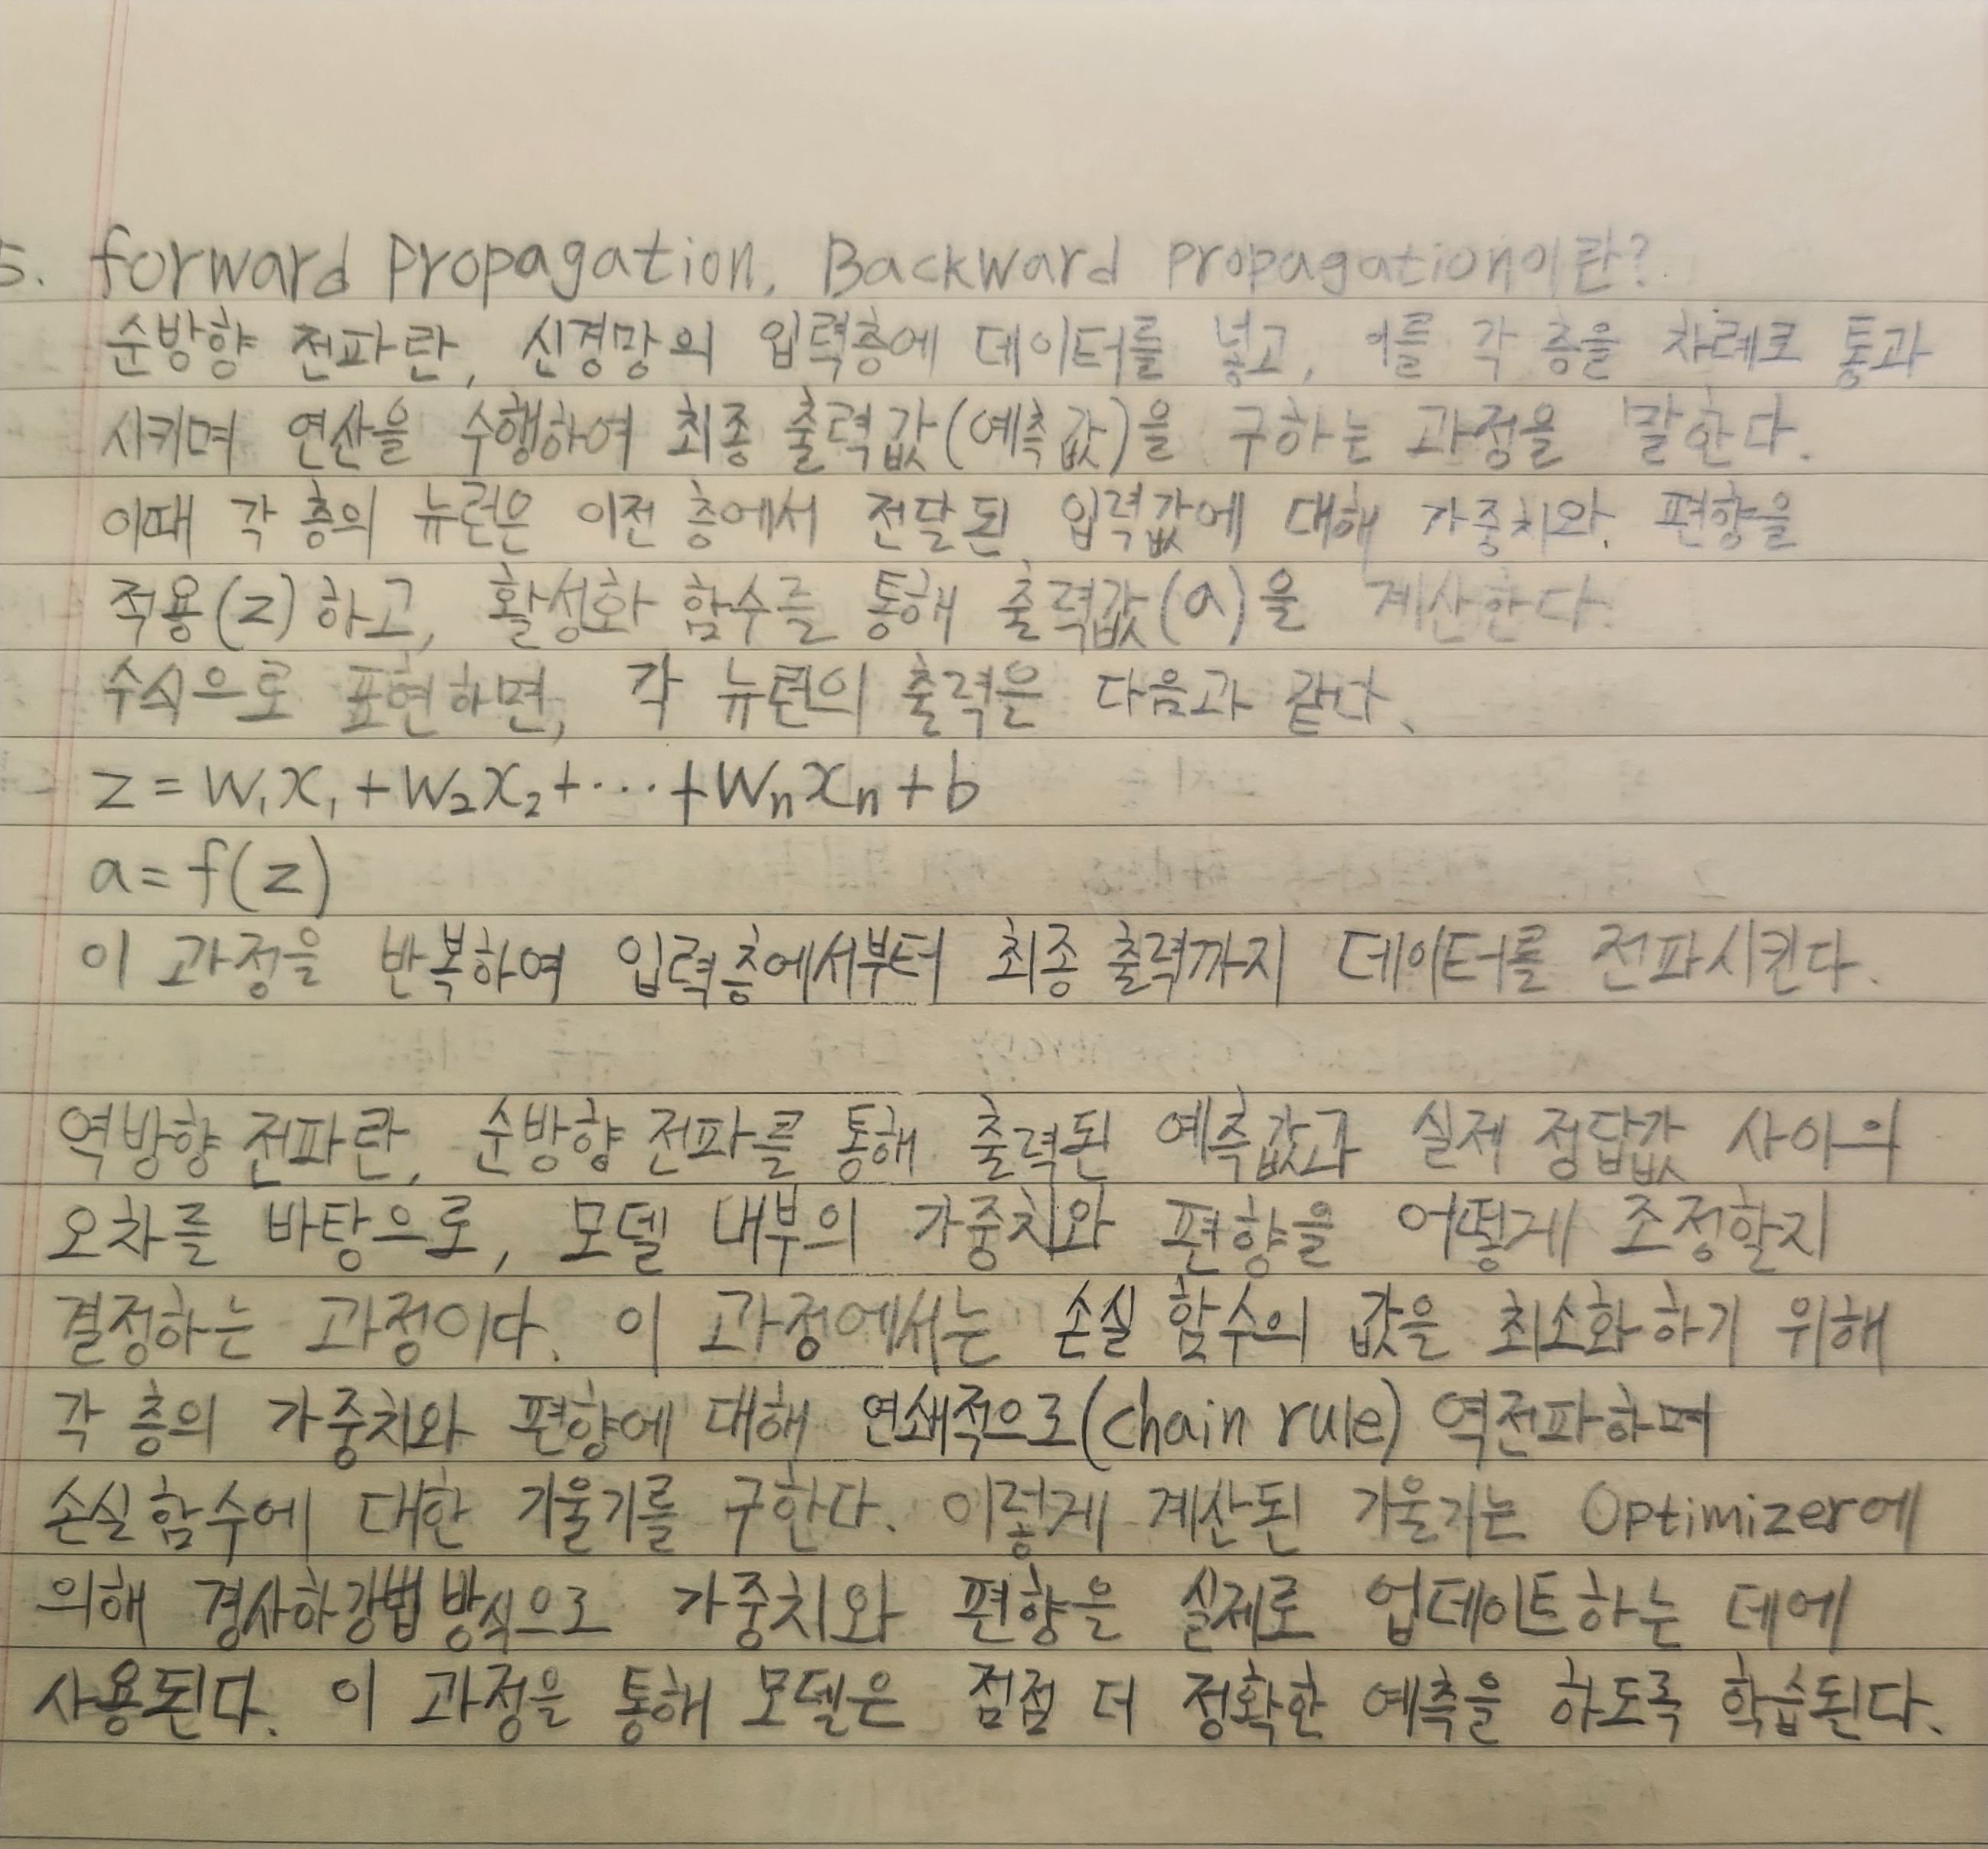 5. forward Propagation, Backward Propagation이란?
순방향 전파란, 신경망의 입력층에 데이터를 넣고, 이를 각 층을 차례로 통과
시키며 연산을 수행하여 최종 출력값(예측값)을 구하는 과정을 말한다.
이때 각 층의 뉴런은 이전 층에서 전달된 입력값에 대해 가중치와 편향을
적용(z)하고, 활성화 함수를 통해 출력값(a)을 계산한다.
수식으로 표현하면, 각 뉴런의 출력은 다음과 같다.
z = W₁x₁ + W₂x₂ + ··· + Wₙxₙ + b
a = f(z)
이 과정을 반복하여 입력층에서부터 최종 출력까지 데이터를 전파시킨다.
역방향 전파란, 순방향 전파를 통해 출력된 예측값과 실제 정답값 사이의
오차를 바탕으로, 모델 내부의 가중치와 편향을 어떻게 조정할지
결정하는 과정이다. 이 과정에서는 손실 함수의 값을 최소화하기 위해
각 층의 가중치와 편향에 대해 연쇄적으로(chain rule) 역전파하며
손실 함수에 대한 기울기를 구한다. 이렇게 계산된 기울기는 Optimizer에
의해 경사하강법 방식으로 가중치와 편향을 실제로 업데이트하는 데에
사용된다. 이 과정을 통해 모델은 점점 더 정확한 예측을 하도록 학습된다.